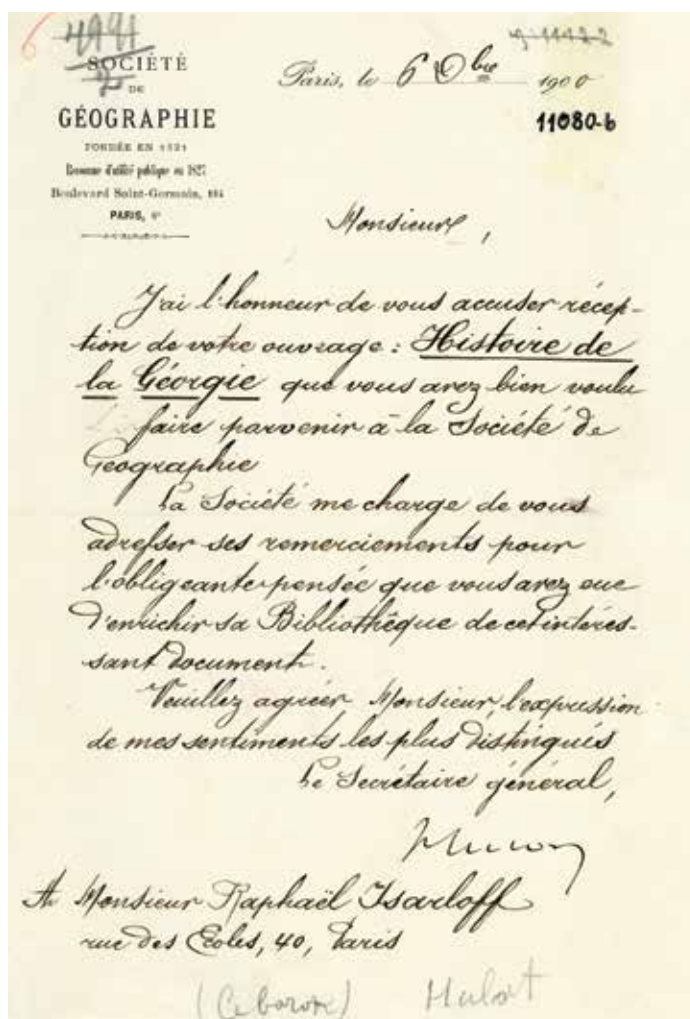 6
4991
2
SOCIÉTÉ
DE
GÉOGRAPHIE
FONDÉE EN 1821
Reconnue d'utilité publique en 1827
Boulevard Saint-Germain, 184
PARIS, 6e
Paris, le 6 Xbre 1900
11080-b
Monsieur,
J'ai l'honneur de vous accuser récep-
tion de votre ouvrage : Histoire de
la Géorgie que vous avez bien voulu
faire parvenir à la Société de
Geographie
La Société me charge de vous
adresser ses remerciements pour
l'obligeante pensée que vous avez eue
d'enrichir sa Bibliothèque de cet intéres-
sant document.
Veuillez agréer, Monsieur, l'expression
de mes sentiments les plus distingués
Le Secrétaire général,
A Monsieur Raphaël Isarloff
rue des Ecoles, 40, Paris
(Le baron) Hulot